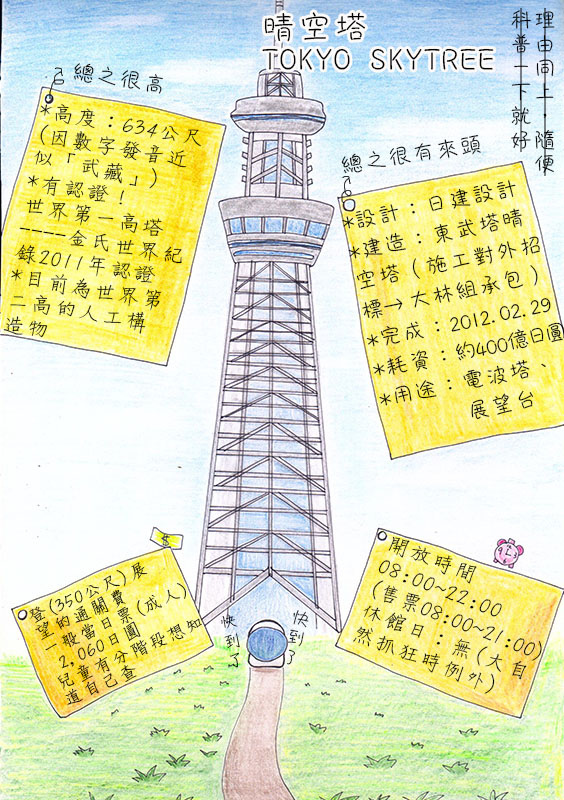 晴空塔
TOKYO SKYTREE
理由同上，隨便
科普一下就好
總之很高
*高度：634公尺
(因數字發音近
似「武藏」)
*有認證！
世界第一高塔
----金氏世界紀
錄2011年認證
*目前為世界第
二高的人工構
造物
總之很有來頭
*設計：日建設計
*建造：東武塔晴
空塔（施工對外招
標→大林組承包）
*完成：2012.02.29
*耗資：約400億日圓
*用途：電波塔、
展望台
$
登(350公尺)展
望的通關費
一般當日票(成人)
2,060日圓
兒童有分階段想知
道自己查
開放時間
08:00~22:00
(售票08:00~21:00)
休館日：無(大自
然抓狂時例外)
快到了
快到了